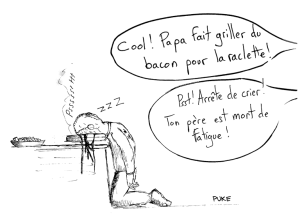 Cool! Papa fait griller du
bacon pour la raclette!
Psst! Arrête de crier!
Ton père est mort de
fatigue!
ZZZ
PUKE